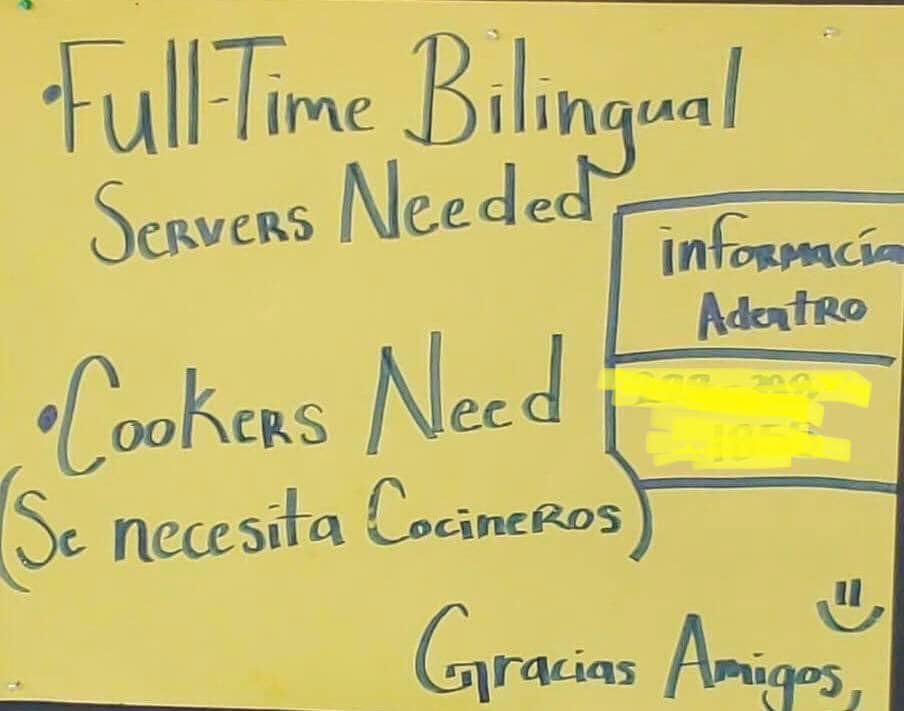 • Full-Time Bilingual
Servers Needed
• Cookers Need
(Se necesita Cocineros)
informacion
Adentro
Gracias Amigos,